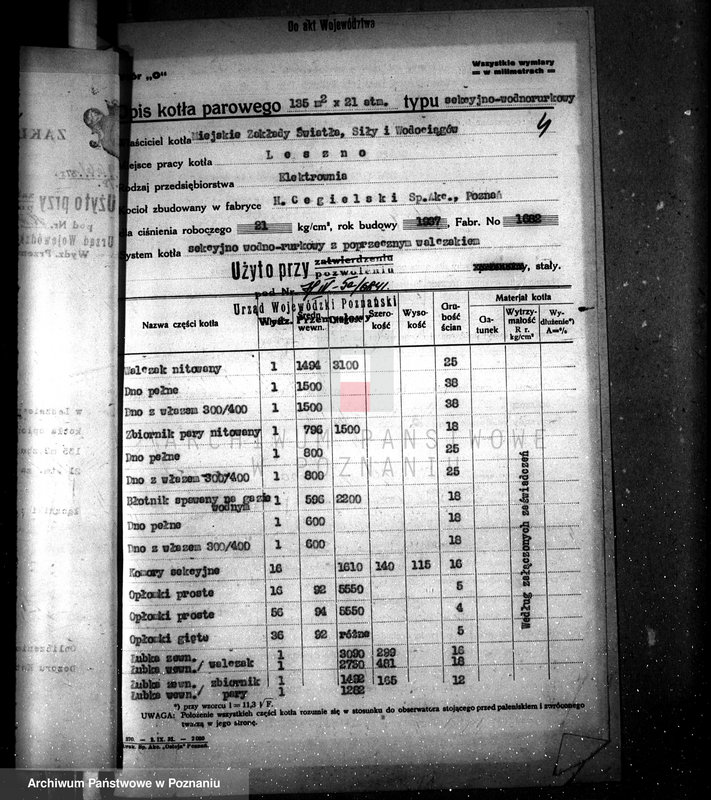 Do akt Województwa
ór „O"
Wszystkie wymiary
— w milimetrach —
pis kotła parowego 135 m² x 21 atm. typu sekcyjno-wodnorurkowy
4
aściciel kotła Miejskie Zakłady Światła, Siły i Wodociągów
ejsce pracy kotła Leszno
odzaj przedsiębiorstwa Elektrownia
ocioł zbudowany w fabryce H. Cegielski Sp.Akc., Poznań
a ciśnienia roboczego 21 kg/cm², rok budowy 1937, Fabr. No 1682
ystem kotła sekcyjno wodno-rurkowy z poprzecznym walczakiem
Użyto przy zatwierdzeniu
pozwoleniu
, stały.
pod Nr.
Urząd Wojewódzki Poznański
Wydz. Przemysłowy
Nazwa części kotła
Średn. wewn.
Szero-kość
Wyso-kość
Gru-bość ścian
Materjał kotła
Ga-tunek
Wytrzy-małość R r. kg/cm²
Wy-dłużenie*) A=%
Walczak nitowany 1 1494 3100 25
Dno pełne 1 1500 38
Dno z włazem 300/400 1 1500 38
Zbiornik pary nitowany 1 796 1500 18
Dno pełne 1 800 25
Dno z włazem 300/400 1 800 25
Błotnik spawany na gazie wodnym 1 596 2200 18
Dno pełne 1 600 18
Dno z włazem 300/400 1 600 18
Komory sekcyjne 16 1610 140 115 16
Opłomki proste 16 92 5550 5
Opłomki proste 56 94 5550 4
Opłomki gięte 36 92 różne 5
Łubka zewn. 1 3090 299 16
Łubka wewn./ walczak 1 2750 481 18
Łubka zewn. zbiornik 1 1492 165 12
Łubka wewn./ pary 1 1282
Według załączonych zaświadczeń
*) przy wzorcu l = 11,3 √F.
UWAGA: Położenie wszystkich części kotła rozumie się w stosunku do obserwatora stojącego przed paleniskiem i zwróconego
twarzą w jego stronę.
Druk. Sp. Akc. „Ostoja" Poznań.
ARCHIWUM PAŃSTWOWE
W POZNANIU
Archiwum Państwowe w Poznaniu